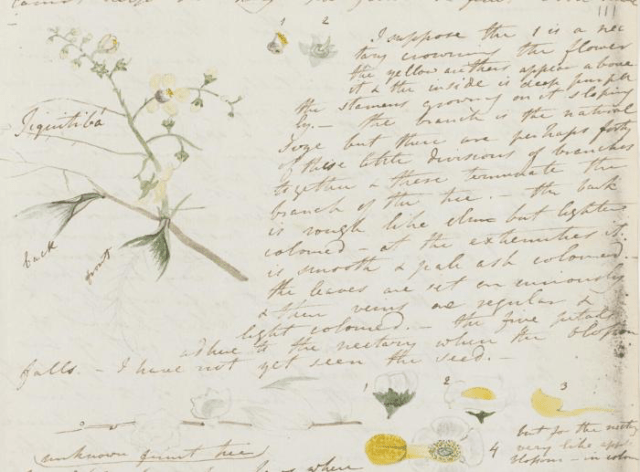 111
1 2
I suppose the 1 is a nec
tary crowning the flower
the yellow anthers appear above
it & the inside is deep purple
the stemens growing on it sloping
ly. — the branch is the natural
Jiquitibá
size but there are perhaps forty
of these little divisions of branches
together & these terminate the
branch of the tree. — the bark
is rough like elm but lighter
coloured — at the extremities it
is smooth & pale ash coloured. —
back
front
the leaves are set on
& their veins are regular &
light coloured. — the five petals
adhere to the nectary when the blossom
falls. — I have not yet seen the seed. —
1 2 3
but for the necta
very like apple
blossom — in colour
4
(unknown
where